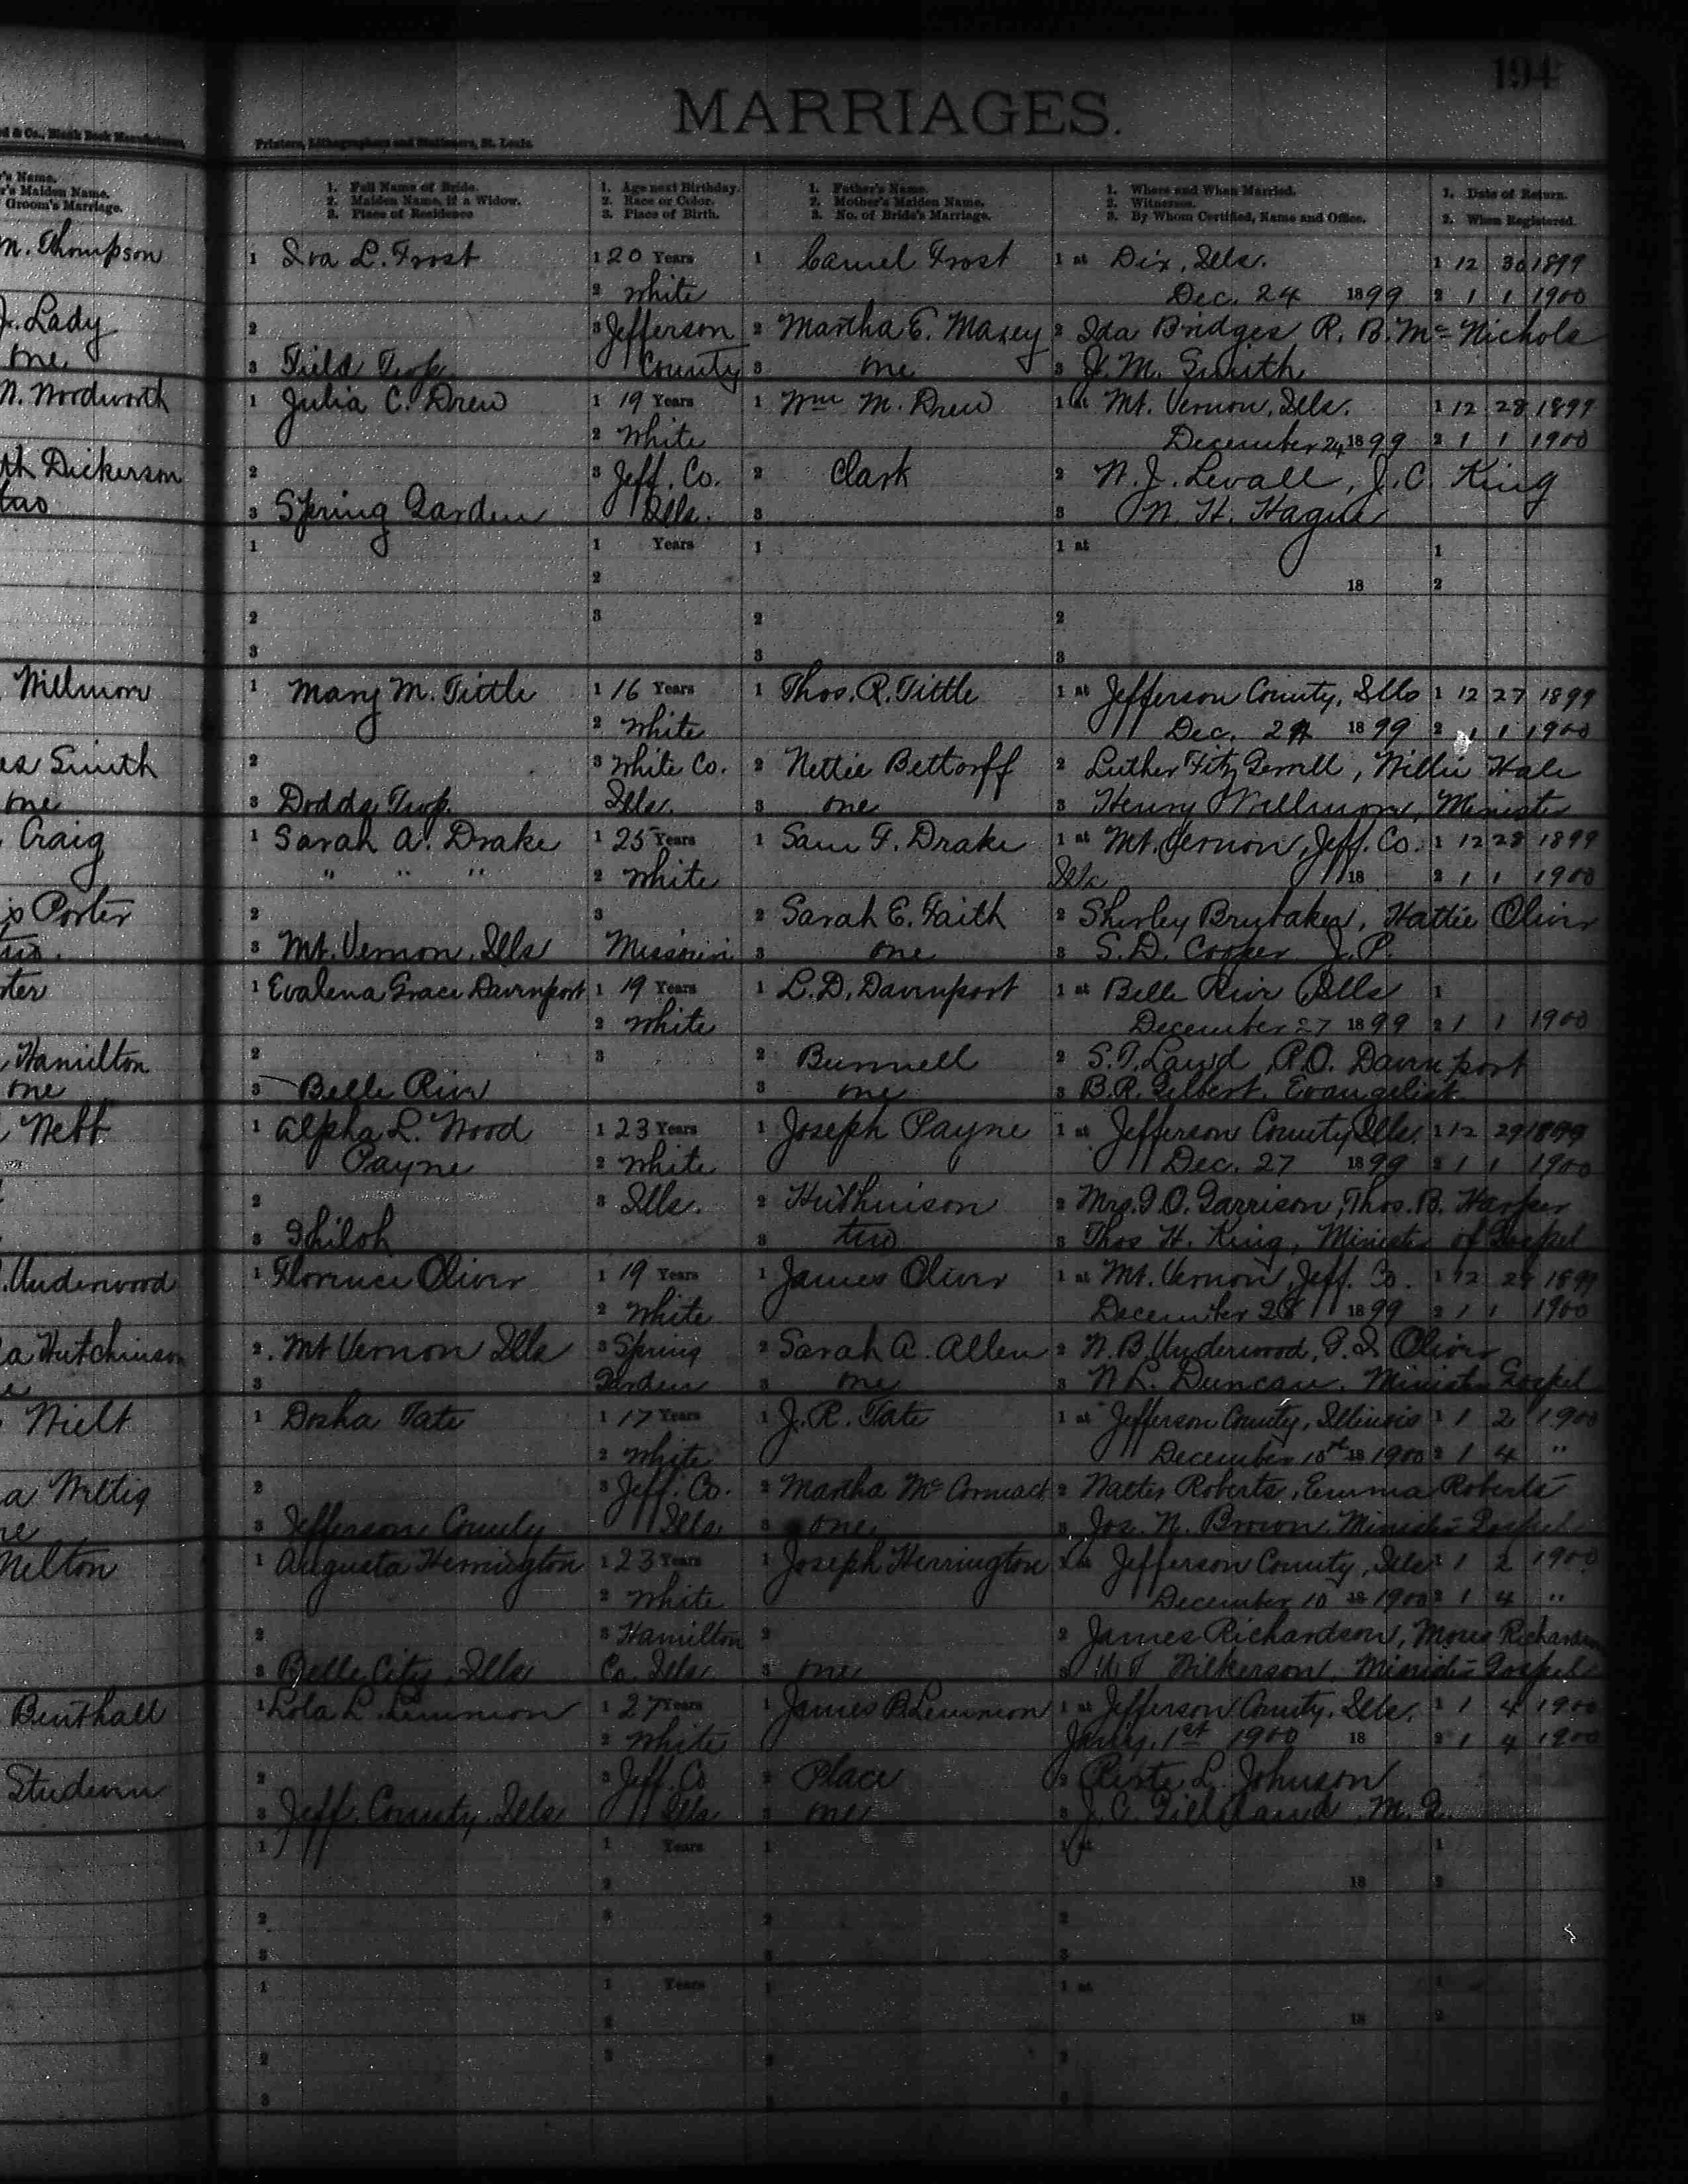 194
MARRIAGES.
d & Co., Blank Book Manufacturers,
Printers, Lithographers and Stationers, St. Louis.
's Name.
r's Maiden Name.
Groom's Marriage.
1. Full Name of Bride.
2. Maiden Name, if a Widow.
3. Place of Residence
1. Age next Birthday.
2. Race or Color.
3. Place of Birth.
1. Father's Name.
2. Mother's Maiden Name.
3. No. of Bride's Marriage.
1. Where and When Married.
2. Witnesses.
3. By Whom Certified, Name and Office.
1. Date of Return.
2. When Registered.
m. Thompson 1 Iva L. Frost 1 20 Years 1 Camel Frost 1 at Dix, Ills. 1 12 30 1899
2 White Dec. 24 1899 2 1 1 1900
J. Lady 2 3 Jefferson 2 Martha E. Maxey 2 Ida Bridges R. B. Mc Nichols
one 3 Field Twp. County 3 one 3 J. M. Smith
N. Wordworth 1 Julia C. Drew 1 19 Years 1 Wm M. Drew 1 at Mt. Vernon, Ills. 1 12 28 1899
2 White December 24 1899 2 1 1 1900
th Dickerson 2 3 Jeff. Co. 2 Clark 2 N. J. Levall, J. C. King
two 3 Spring Garden Ills. 3 3 N. H. Hague
1 1 Years 1 1 at 1
2 18 2
2 3 2 2
3 3 3
Willmore 1 Mary M. Tittle 1 16 Years 1 Thos. R. Tittle 1 at Jefferson County, Ills 1 12 27 1899
2 White Dec. 24 1899 2 1 1 1900
es Smith 2 3 White Co. 2 Nettie Bettorff 2 Luther Fitz Gerrell, Willie Hale
one 3 Dodds Twp. Ills. 3 one 3 Henry Willmore, Minister
Craig 1 Sarah A. Drake 1 25 Years 1 Sam F. Drake 1 at Mt. Vernon, Jeff. Co. 1 12 28 1899
" " " 2 White Ills 18 2 1 1 1900
s Porter 2 3 2 Sarah E. Faith 2 Shirley Brubaker, Hattie Oliver
3 Mt. Vernon, Ills Missouri 3 one 3 S. D. Cooper J. P.
ter 1 Evalena Grace Davenport 1 19 Years 1 L. D. Davenport 1 at Belle Rive Ills 1
2 White December 27 1899 2 1 1 1900
Hamilton 2 3 2 Bunnell 2 S. T. Laird, P. O. Davenport
one 3 Belle Rive 3 one 3 B. R. Gilbert, Evangelist
Neff 1 Alpha L. Wood 1 23 Years 1 Joseph Payne 1 at Jefferson County Ills. 1 12 29 1899
Payne 2 White Dec. 27 1899 2 1 1 1900
2 3 Ills. 2 Huthinison 2 Mrs. I. O. Garrison, Thos. B. Harper
3 Shiloh 3 two 3 Thos H. King, Minister of Gospel
Underwood 1 Florence Oliver 1 19 Years 1 James Oliver 1 at Mt. Vernon, Jeff. Co. 1 12 29 1899
2 White December 28 1899 2 1 1 1900
a Hutchinson 2 Mt Vernon Ills 3 Spring 2 Sarah A. Allen 2 N. B. Underwood, G. S. Oliver
3 Garden 3 one 3 N. L. Duncan, Minister Gospel
Wielt 1 Dosha Tate 1 17 Years 1 J. R. Tate 1 at Jefferson County, Illinois 1 1 2 1900
2 White December 1900 2 1 4 "
a Wittig 2 3 Jeff. Co. 2 Martha McCormack 2 Walter Roberts, Emma Roberts
3 Jefferson County Ills 3 one 3 Jos. N. Brown, Minister Gospel
Melton 1 Augusta Herrington 1 23 Years 1 Joseph Herrington 1 at Jefferson County, Ills 1 1 2 1900
2 White December 10 18 1900 2 1 4 "
2 3 Hamilton 2 2 James Richardson, Moses Richardson
3 Belle City, Ills Co. Ills 3 one 3 Wilkerson Minister Gospel
Benthall 1 Lola L. Lemmon 1 27 Years 1 James B. Lemmon 1 at Jefferson County, Ills. 1 1 4 1900
2 White Jan'y. 1st 1900 18 2 1 4 1900
Studenn 2 3 Jeff. Co 2 Place 2 L. Johnson
3 Jeff. County, Ills Ills 3 one 3 J. C. Gilliland, M. G.
1 1 Years 1 1 at 1
2 18 2
2 3 2 2
3 3 3
1 1 Years 1 1 at 1
2 18 2
2 3 2 2
3 3 3